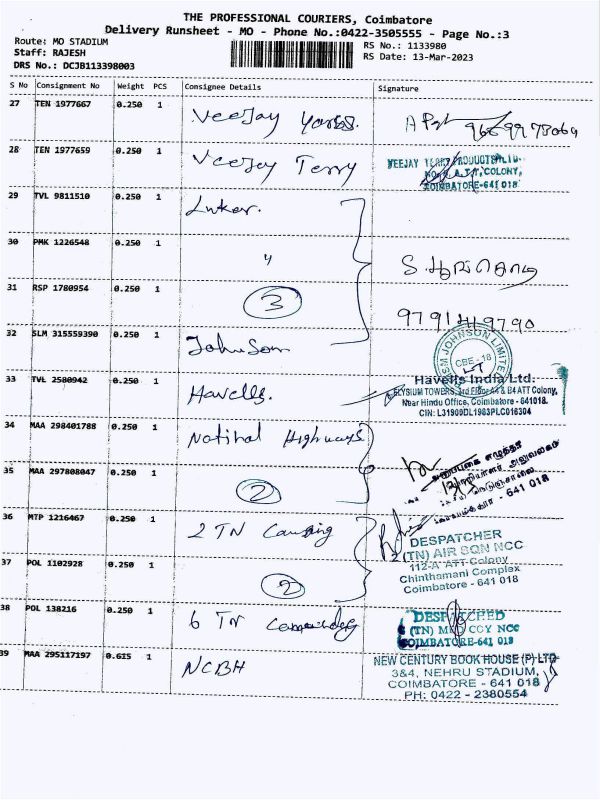 THE PROFESSIONAL COURIERS, Coimbatore
Delivery Runsheet - MO - Phone No.:0422-3505555 - Page No.:3
Route: MO STADIUM
Staff: RAJESH
DRS No.: DCJB113398003
RS No.: 1133980
RS Date: 13-Mar-2023
S No Consignment No Weight PCS Consignee Details Signature
27 TEN 1977667 0.250 1 Veejay
28 TEN 1977659 0.250 1 Veejay Terry
VEEJAY TERRY PRODUCTS LTD.
COLONY,
COIMBATORE-641 018
29 TVL 9811510 0.250 1
30 PMK 1226548 0.250 1 "
31 RSP 1780954 0.250 1 3
32 SLM 315559390 0.250 1 Johnson
JOHNSON LIMITED
CBE - 18
33 TVL 2580942 0.250 1 Havells.
Havells India Ltd.
ELYSIUM TOWERS, 3rd Floor A4 & B4 ATT Colony,
Near Hindu Office, Coimbatore - 641018.
CIN: L31900DL1983PLC016304
34 MAA 298401788 0.250 1 Highways
35 MAA 297808047 0.250 1 2
- 641 018
36 MTP 1216467 0.250 1 2 TN
DESPATCHER
2 (TN) AIR SQN NCC
112-A ATT Colony
Chinthamani Complex
Coimbatore - 641 018
37 POL 1102928 0.250 1 2
38 POL 138216 0.250 1 6 TN
DESPATCHED
6 (TN) NCC
COIMBATORE-641 018
39 MAA 295117197 0.615 1 NCBH
NEW CENTURY BOOK HOUSE (P) LTD
3&4, NEHRU STADIUM,
COIMBATORE - 641 018
PH: 0422 - 2380554